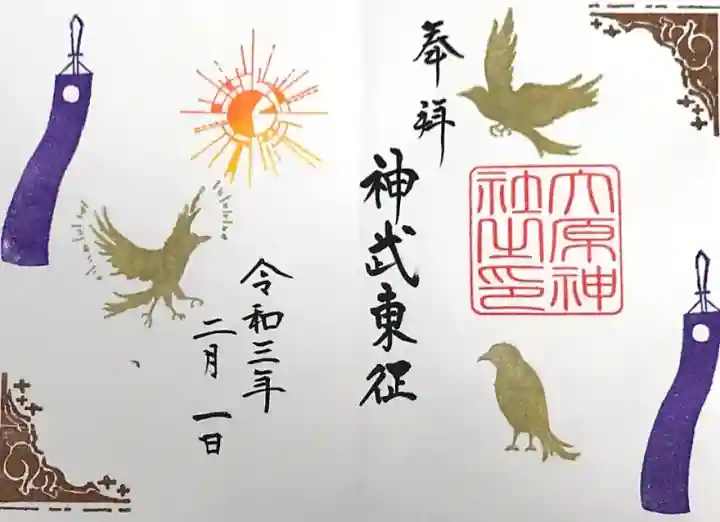 奉拝
六原神
社之印
神武東征
令和三年
二月一日